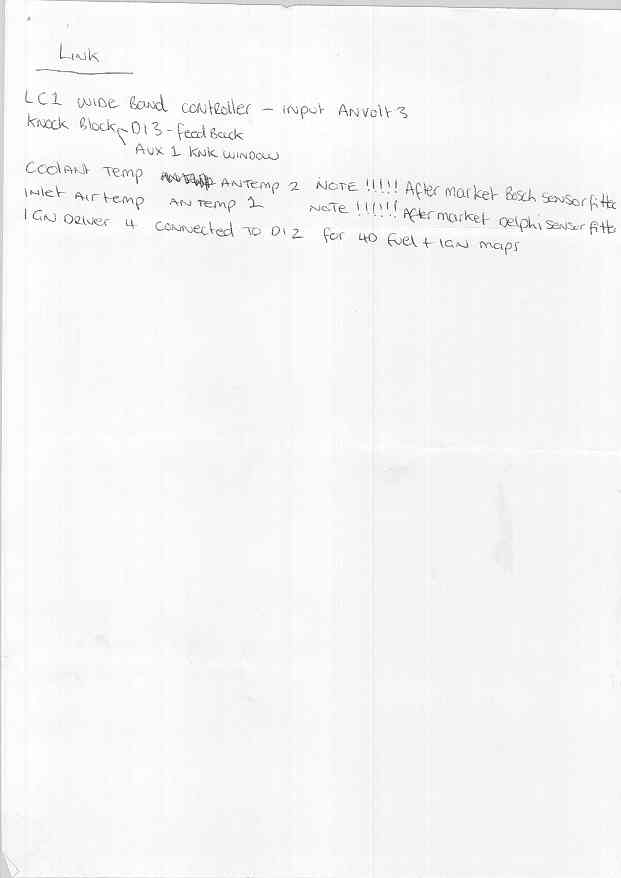 LINK
LC1 WIDE BAND CONTROLLER - INPUT AN VOLT 3
KNOCK BLOCK DI3 - feed Back
AUX 1 KNK WINDOW
COOLANT TEMP AN TEMP 2 NOTE !!!!! After market Bosch sensor fitte
INLET AIR temp AN TEMP 1 NOTE !!!!!! After market Delphi sensor fitte
IGN DRIVER 4 CONNECTED TO DI2 for 4D fuel + IGN maps